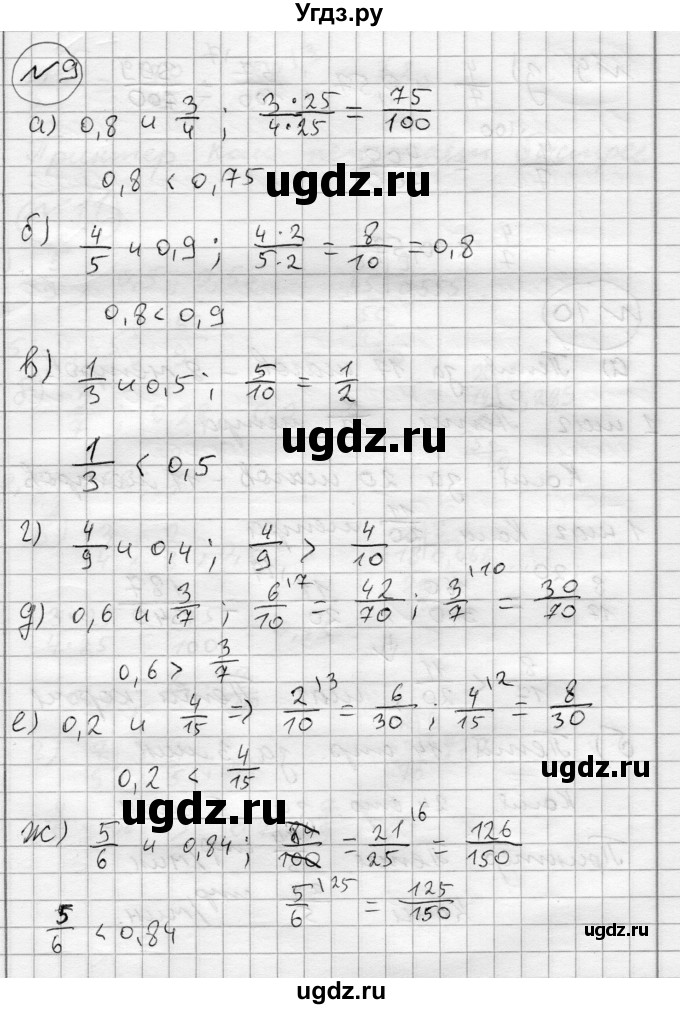 Угдз.ру
№9
а) 0,8 и 3/4 ; 3·25/4·25 = 75/100
0,8 < 0,75
ugdz.ru
б) 4/5 и 0,9 ; 4·2/5·2 = 8/10 = 0,8
0,8 < 0,9
в) 1/3 и 0,5 ; 5/10 = 1/2
ugdz.ru
1/3 < 0,5
г) 4/9 и 0,4 ; 4/9 > 4/10
д) 0,6 и 3/7 ; 6/10 \7 = 42/70 ; 3/7 \10 = 30/70
0,6 > 3/7
ugdz.ru
е) 0,2 и 4/15 => 2/10 \3 = 6/30 ; 4/15 \2 = 8/30
0,2 < 4/15
ugdz.ru
ж) 5/6 и 0,84 ; 84/100 = 21/25 \6 = 126/150
5/6 \25 = 125/150
5/6 < 0,84
ugdz.ru
ugdz.ru